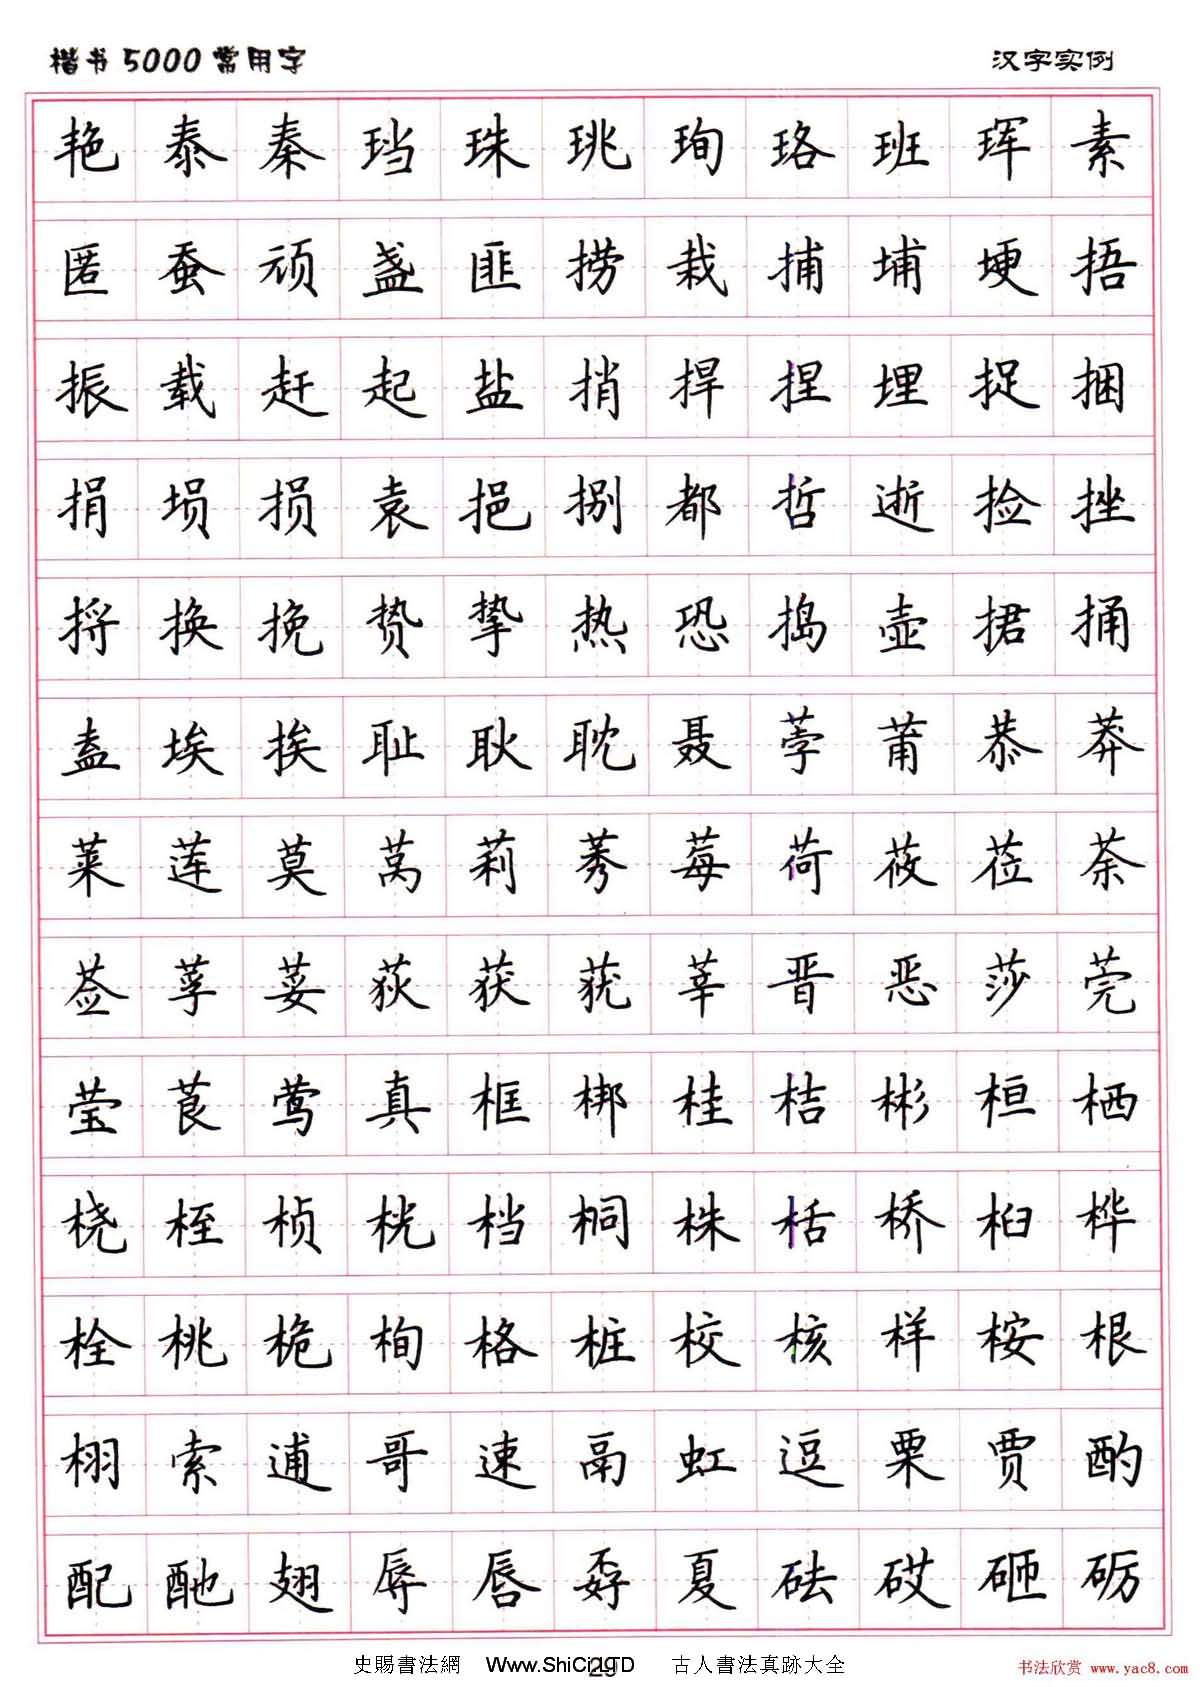 楷书5000常用字 汉字实例
艳泰秦珰珠珧珣珞班珲素
匿蚕顽盏匪捞栽捕埔埂捂
振载赶起盐捎捍捏埋捉捆
捐埙损袁挹捌都哲逝捡挫
捋换挽贽挚热恐捣壶捃捅
盍埃挨耻耿耽聂荸莆恭莽
莱莲莫莴莉莠莓荷莜莅荼
莶莩荽荻获莸莘晋恶莎莞
莹莨莺真框梆桂桔彬桓栖
桡桎桢桄档桐株栝桥桕桦
栓桃桅栒格桩校核样桉根
栩索逋哥速鬲虹逗栗贾酌
配酏翅辱唇孬夏砝砹砸砺
史賜書法網 Www.ShiCi.TD 古人書法真跡大全
29
书法欣赏 www.yac8.com